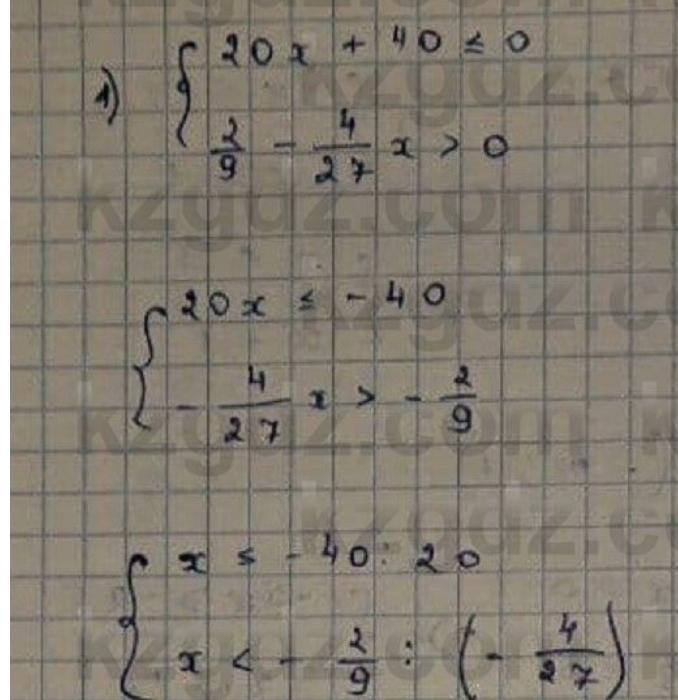 1) { 20x + 40 ≤ 0
2/9 - 4/27 x > 0
{ 20x ≤ -40
- 4/27 x > - 2/9
{ x ≤ -40 : 20
x < - 2/9 : (- 4/27)
kzgdz.com